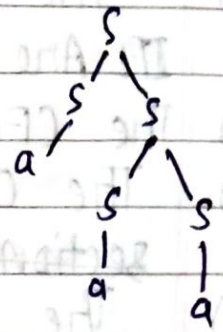 S
S S
a
S S
a a